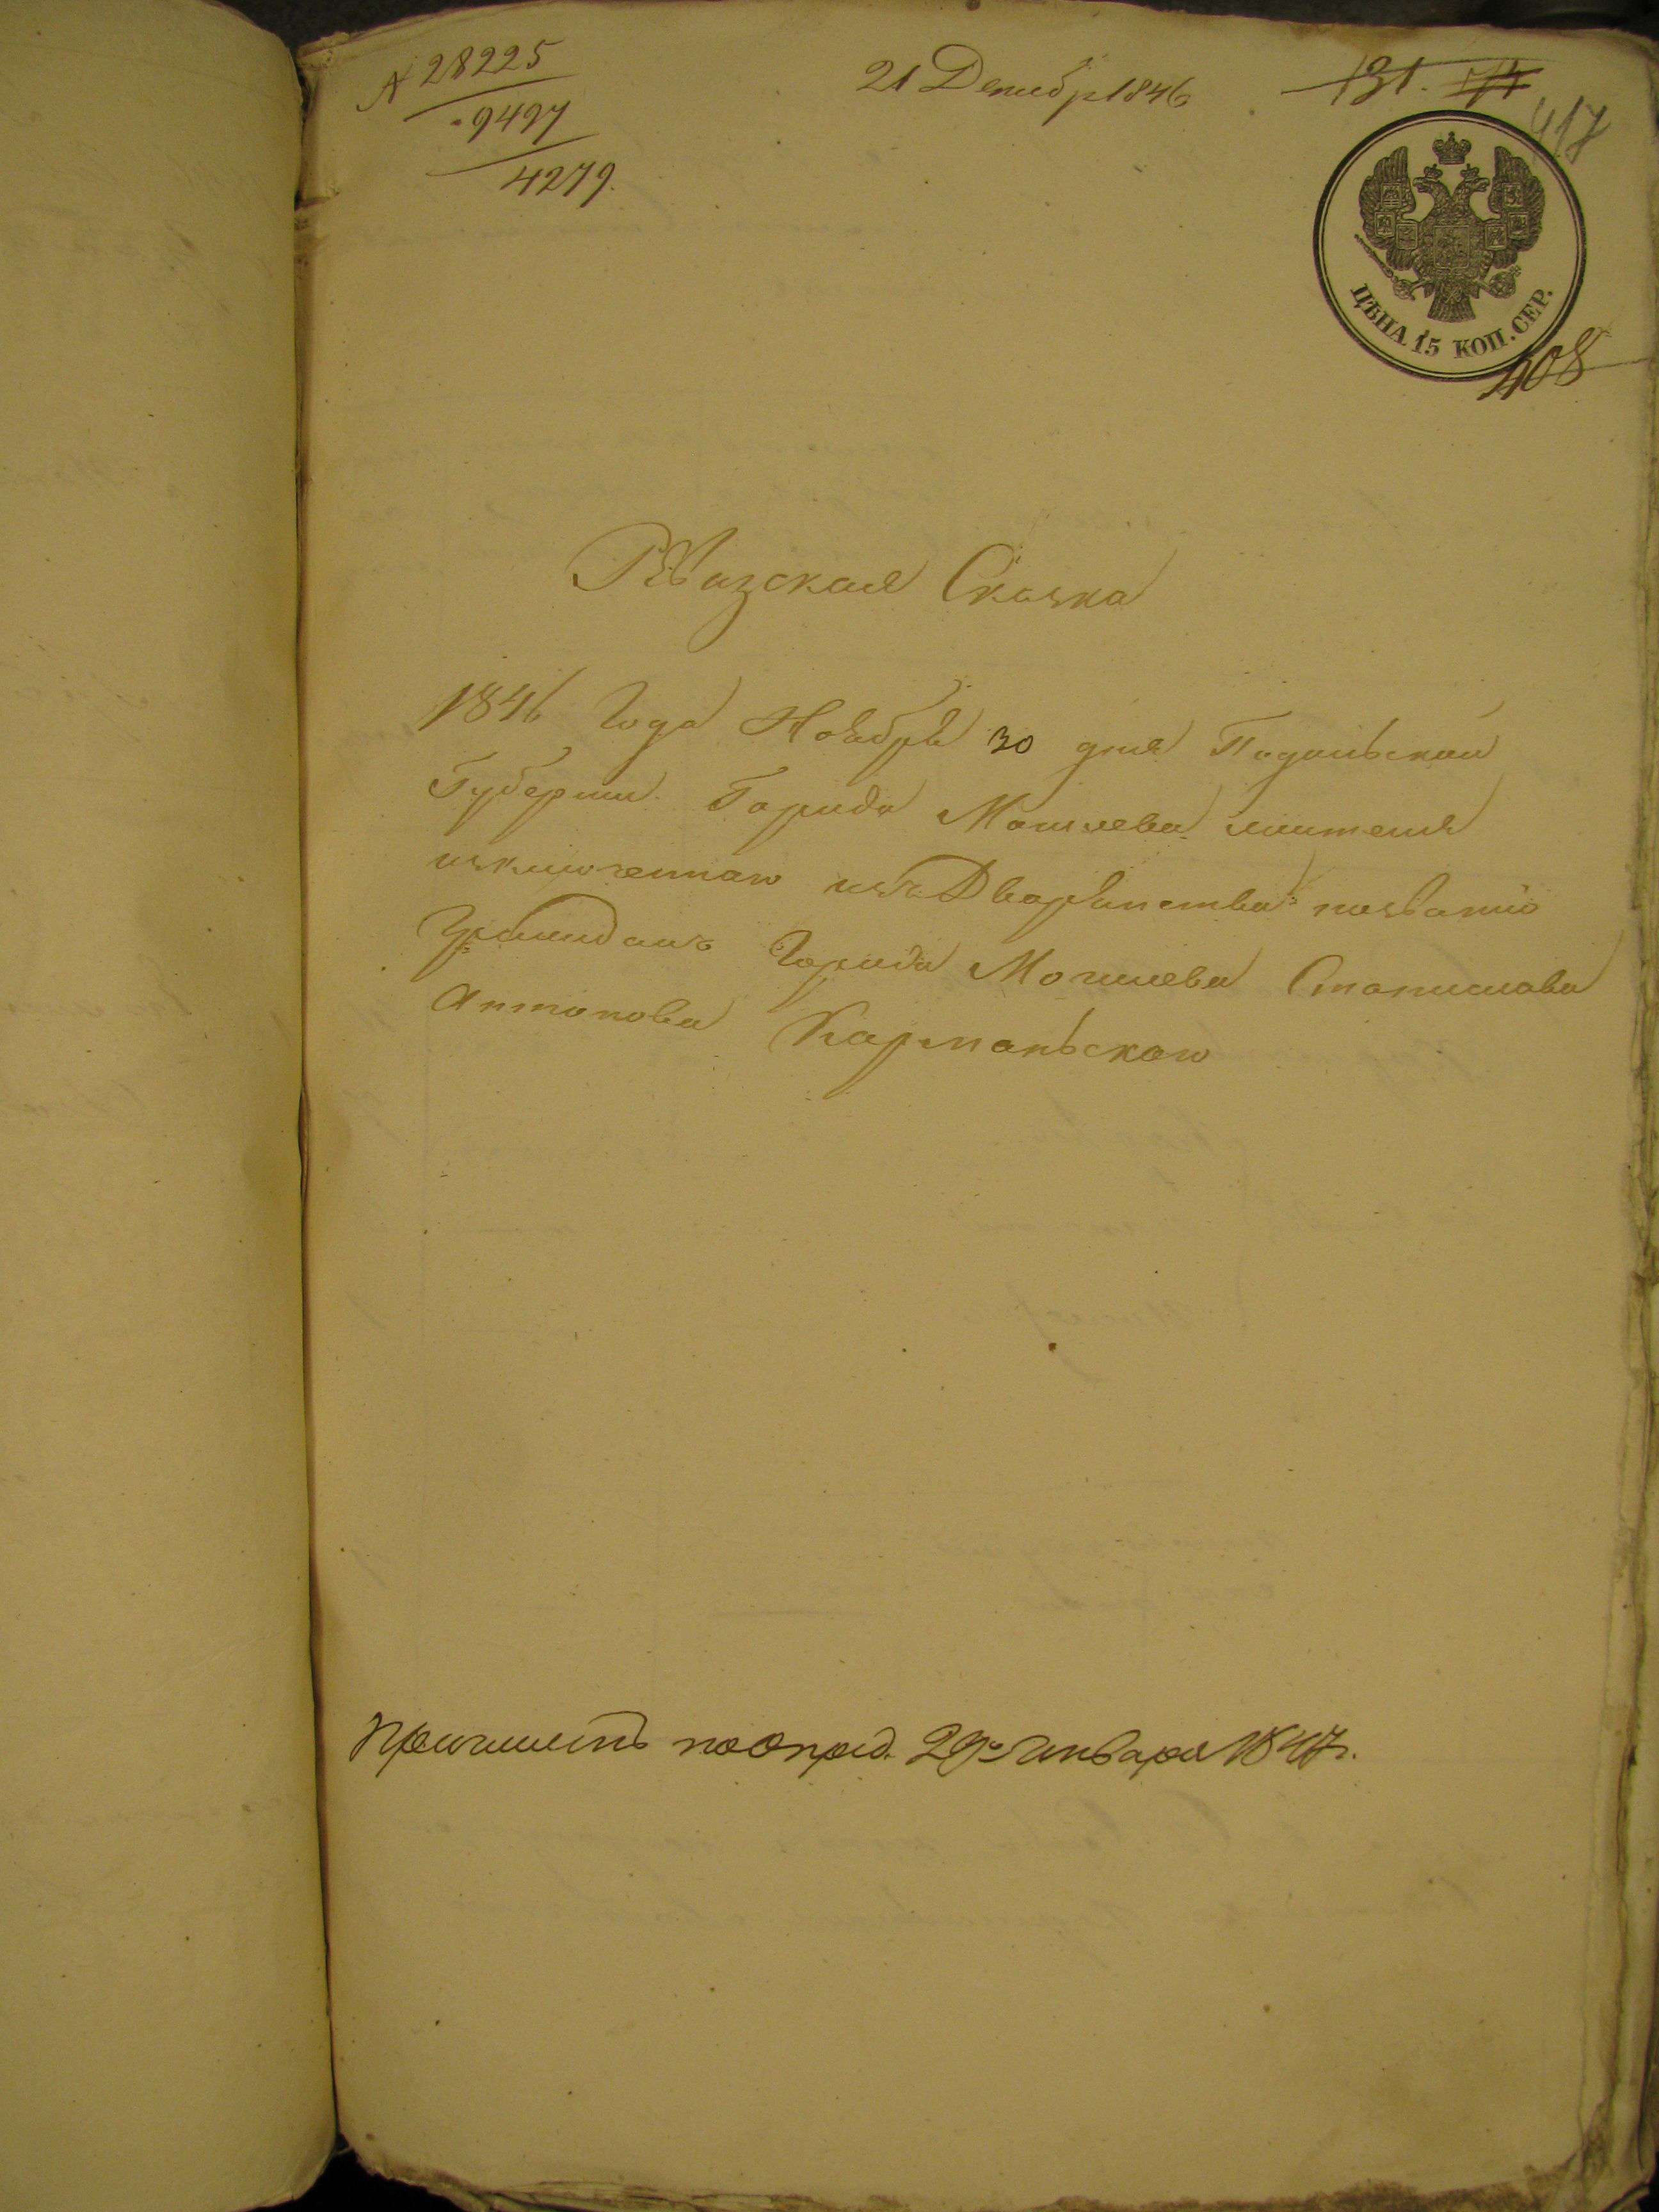 № 28225
9497
4279.
21 Декабр 1846
131.
417
ЦѢНА 15 КОП. СЕР.
408
Рѣвизская Сказка
1846 Года Ноября 30 дня Подольской
Губернии Города Могилева жителя
изключеннаго изъ Дворянства названію
Гражданъ Города Могилева Станислава
Антонова Карманьскаго
Причислить по опред. 29го Января 1847г.